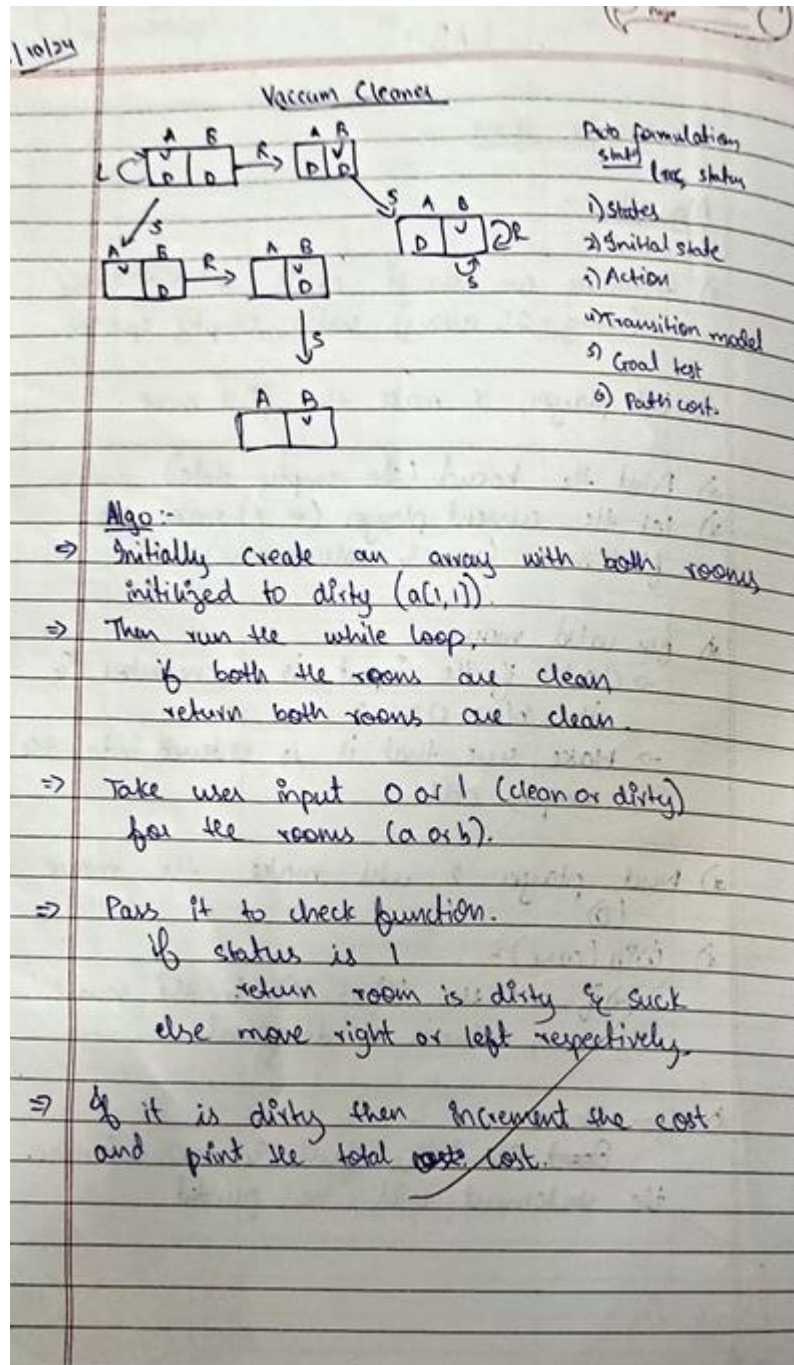 /10/24
Page
Vaccum Cleaner
A B
L V D D
R
A B
D V D
S
S
A B
D V
R
S
A B
V D
R
A B
V D
S
A B
V
formulation
status
1) States
2) Initial state
3) Action
4) Transition model
5) Goal test
6) Path cost.
Algo:
⇒ Initially create an array with both rooms
initilized to dirty (a[1,1]).
⇒ Then run the while loop,
if both the rooms are clean
return both rooms are clean.
⇒ Take user input 0 or 1 (clean or dirty)
for the rooms (a or b).
⇒ Pass it to check function.
if status is 1
return room is dirty & suck
else move right or left respectively.
⇒ If it is dirty then increment the cost
and print the total cost.